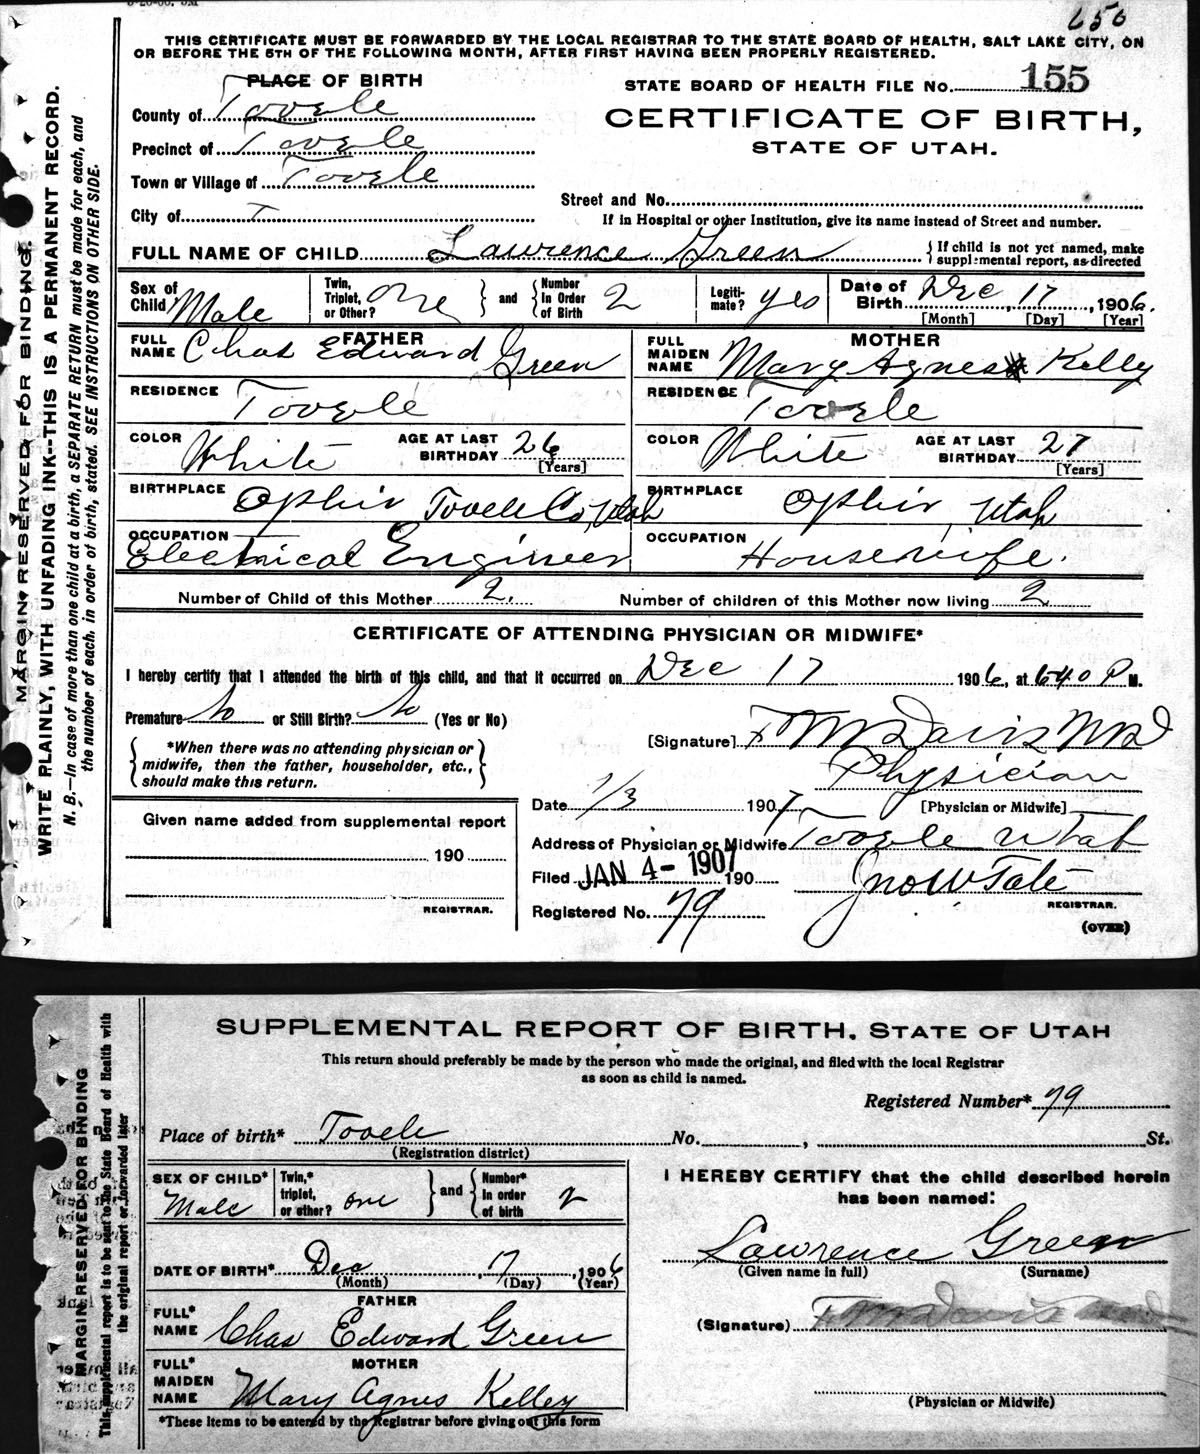 656
THIS CERTIFICATE MUST BE FORWARDED BY THE LOCAL REGISTRAR TO THE STATE BOARD OF HEALTH, SALT LAKE CITY, ON
OR BEFORE THE 5TH OF THE FOLLOWING MONTH, AFTER FIRST HAVING BEEN PROPERLY REGISTERED.
PLACE OF BIRTH
STATE BOARD OF HEALTH FILE NO. 155
County of Tooele
CERTIFICATE OF BIRTH,
Precinct of Tooele
STATE OF UTAH.
Town or Village of Tooele
Street and No.
City of T
If in Hospital or other Institution, give its name instead of Street and number.
FULL NAME OF CHILD Lawrence Green { If child is not yet named, make supplemental report, as directed
Sex of Child Male Twin, Triplet, or Other? one } and { Number in Order of Birth 2 Legitimate? yes Date of Birth Dec 17, 1906.
[Month] [Day] [Year]
FATHER
MOTHER
FULL NAME Chas Edward Green
FULL MAIDEN NAME Mary Agnes Kelly
RESIDENCE Tooele
RESIDENCE Tooele
COLOR White AGE AT LAST BIRTHDAY 26 [Years]
COLOR White AGE AT LAST BIRTHDAY 27 [Years]
BIRTHPLACE Ophir Tooele Co, Utah
BIRTHPLACE Ophir, Utah
OCCUPATION Electrical Engineer
OCCUPATION Housewife.
Number of Child of this Mother 2. Number of children of this Mother now living 2
CERTIFICATE OF ATTENDING PHYSICIAN OR MIDWIFE*
I hereby certify that I attended the birth of this child, and that it occurred on Dec 17 1906, at 640 P M.
Premature? No or Still Birth? No (Yes or No)
[Signature] F M Davis MD
{ *When there was no attending physician or midwife, then the father, householder, etc., should make this return. }
Physician
Date 1/3 1907
[Physician or Midwife]
Given name added from supplemental report
Address of Physician or Midwife Tooele Utah
190
Filed JAN 4- 1907 190
Jno W Tate
REGISTRAR.
REGISTRAR.
Registered No. 79
(OVER)
MARGIN RESERVED FOR BINDING.
WRITE PLAINLY, WITH UNFADING INK--THIS IS A PERMANENT RECORD.
N. B.—In case of more than one child at a birth, a SEPARATE RETURN must be made for each, and
the number of each, in order of birth, stated. SEE INSTRUCTIONS ON OTHER SIDE.
SUPPLEMENTAL REPORT OF BIRTH, STATE OF UTAH
This return should preferably be made by the person who made the original, and filed with the local Registrar
as soon as child is named.
Registered Number* 79
Place of birth* Tooele No. , St.
(Registration district)
SEX OF CHILD* Male Twin,* triplet, or other? one } and { Number* in order of birth 2
I HEREBY CERTIFY that the child described herein
has been named:
Lawrence Green
(Given name in full) (Surname)
DATE OF BIRTH* Dec 17, 1906
(Month) (Day) (Year)
FATHER
FULL* NAME Chas Edward Green
(Signature) F M Davis MD
MOTHER
FULL* MAIDEN NAME Mary Agnes Kelley
(Physician or Midwife)
*These items to be entered by the Registrar before giving out this form
MARGIN RESERVED FOR BINDING
This supplemental report is to be sent to the State Board of Health with
the original report or forwarded later